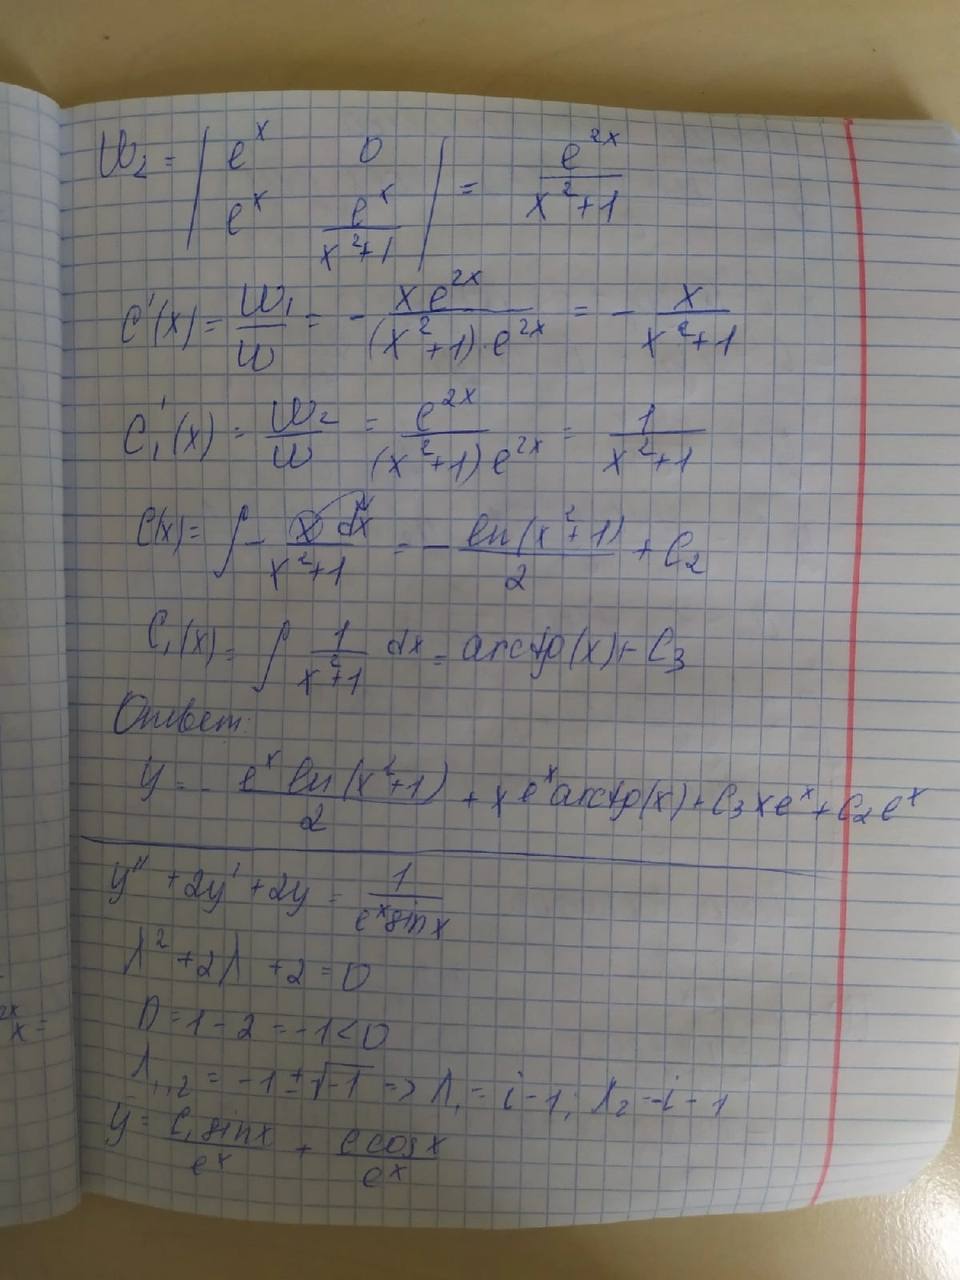 W₂ = | eˣ 0 ; eˣ eˣ/(x²+1) | = e²ˣ/(x²+1)
C'(x) = W₁/W = - xe²ˣ/((x²+1)·e²ˣ) = - x/(x²+1)
C₁'(x) = W₂/W = e²ˣ/((x²+1)e²ˣ) = 1/(x²+1)
C(x) = ∫ - x dx/(x²+1) = - ln(x²+1)/2 + C₂
C₁(x) = ∫ 1/(x²+1) dx = arctg(x) + C₃
Ответ:
y = - eˣ ln(x²+1)/2 + xeˣ arctg(x) + C₃xeˣ + C₂eˣ
y'' + 2y' + 2y = 1/(eˣ sin x)
λ² + 2λ + 2 = 0
D = 1 - 2 = -1 < 0
λ₁,₂ = -1 ± √-1 => λ₁ = i - 1; λ₂ = -i - 1
y = C₁ sin x/eˣ + C cos x/eˣ